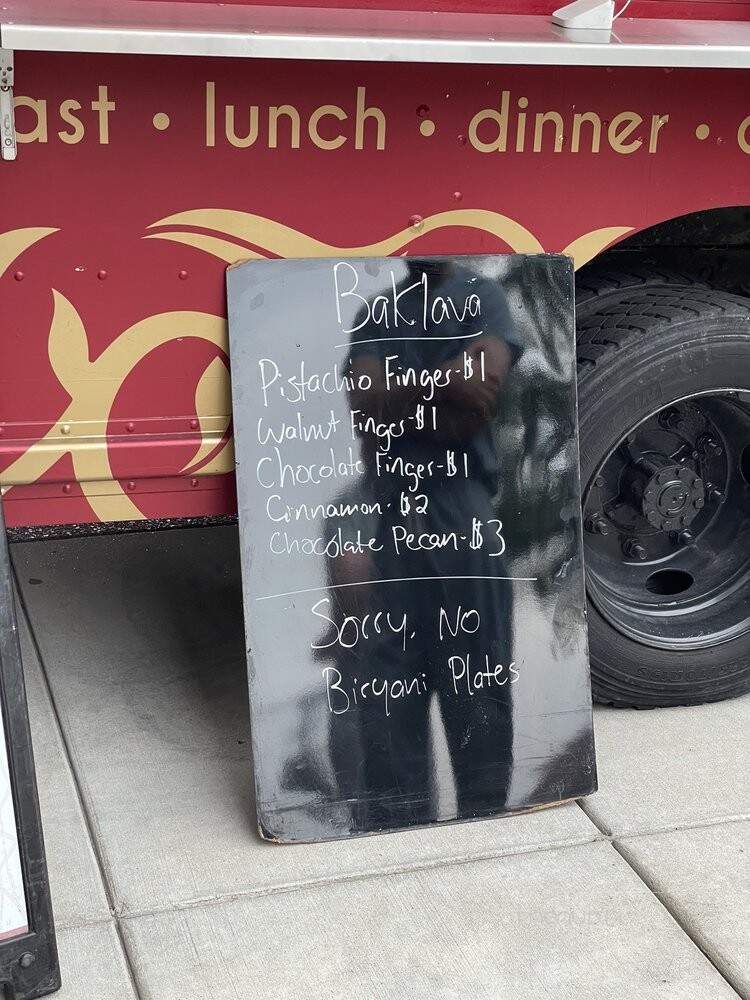 ast • lunch • dinner •
Baklava
Pistachio Finger-$1
Walnut Finger-$1
Chocolate Finger-$1
Cinnamon-$2
Chocolate Pecan-$3
Sorry, No
Biryani Plates